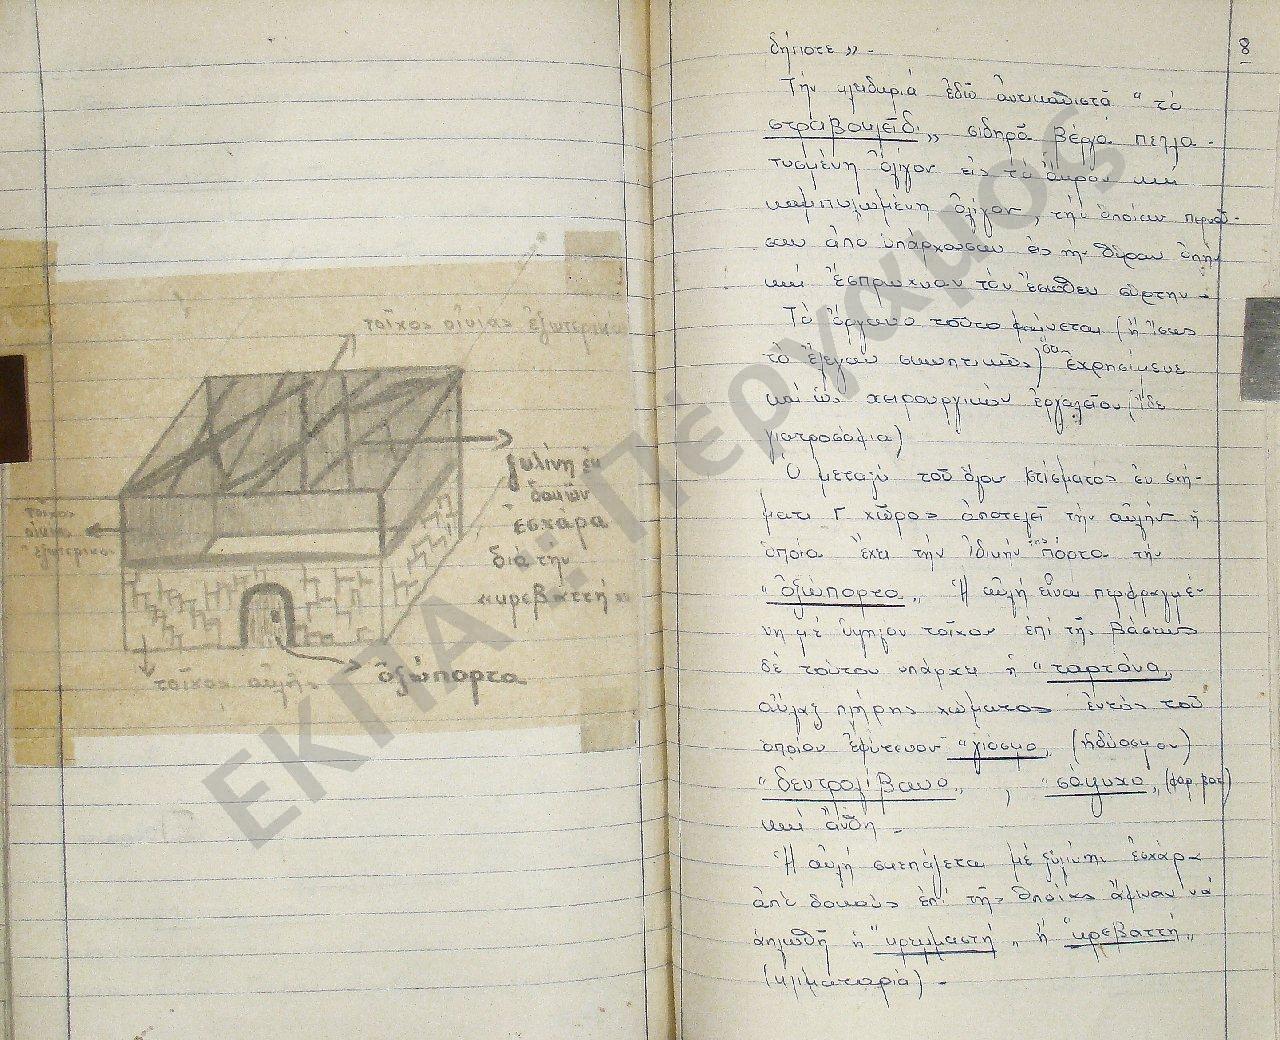 τοῖχος οἰκίας ἐξωτερικὸς
ξυλίνη ἐκ
δοκῶν
ἐσχάρα
διὰ τὴν
"κρεβαττή"
τοῖχος
οἰκίας
ἐξωτερικὸς
τοῖχος αὐλῆς
ὀξώπορτα
8
δήποτε» -
Τὴν κλειδαριά ἐδῶ ἀντικαθιστᾶ "τὸ
στραβόκλειδι„ σιδηρᾶ βέργα πεπλα-
τυσμένη ὀλίγον εἰς τὸ ἄκρον καὶ
καμπυλωμένη ὀλίγον, τὴν ὁποίαν περνοῦ-
σαν ἀπὸ ὑπάρχουσαν εἰς τὴν θύραν ὀπήν
καὶ ἔσπρωχναν τὸν ἔσωθεν σύρτην -
Τὸ ὄργανο τοῦτο φαίνεται (ἢ ἴσως
τὸ ἔλεγαν σκωπτικῶς) ὅτι ἐχρησίμευε
καὶ ὡς χειρουργικὸν ἐργαλεῖον (ἴδε
γιατροσόφια)
Ὁ μεταξὺ τοῦ ὅλου κτίσματος ἐν σχή-
ματι Γ χῶρος ἀποτελεῖ τὴν αὐλήν ἡ
ὁποία ἔχει τὴν ἰδικήν της πόρτα τὴν
"ὀξώπορτα„ Ἡ αὐλὴ εἶναι περιφραγμέ-
νη μὲ ὑψηλὸν τοῖχον ἐπὶ τῆς βάσεως
δὲ τούτου ὑπάρχει ἡ "ταρτάνα„
αὖλαξ πλήρης χώματος ἐντὸς τοῦ
ὁποίου ἐφύτευον "γιόσμο„ (ἡδύοσμον)
"δεντρολίβανο„ , "σάψυχο„ (φαρ. βοτ)
καὶ ἄνθη -
Ἡ αὐλὴ σκεπάζεται μὲ ξυλίνην ἐσχάρα
ἀπὸ δοκοὺς ἐπὶ τῆς ὁποίας ἄφιναν νά
ἁπλωθῆ ἡ "κρεμαστή„ ἤ "κρεβαττή„
(κληματαριά) -
ΕΚΠΑ : Πέργαμος